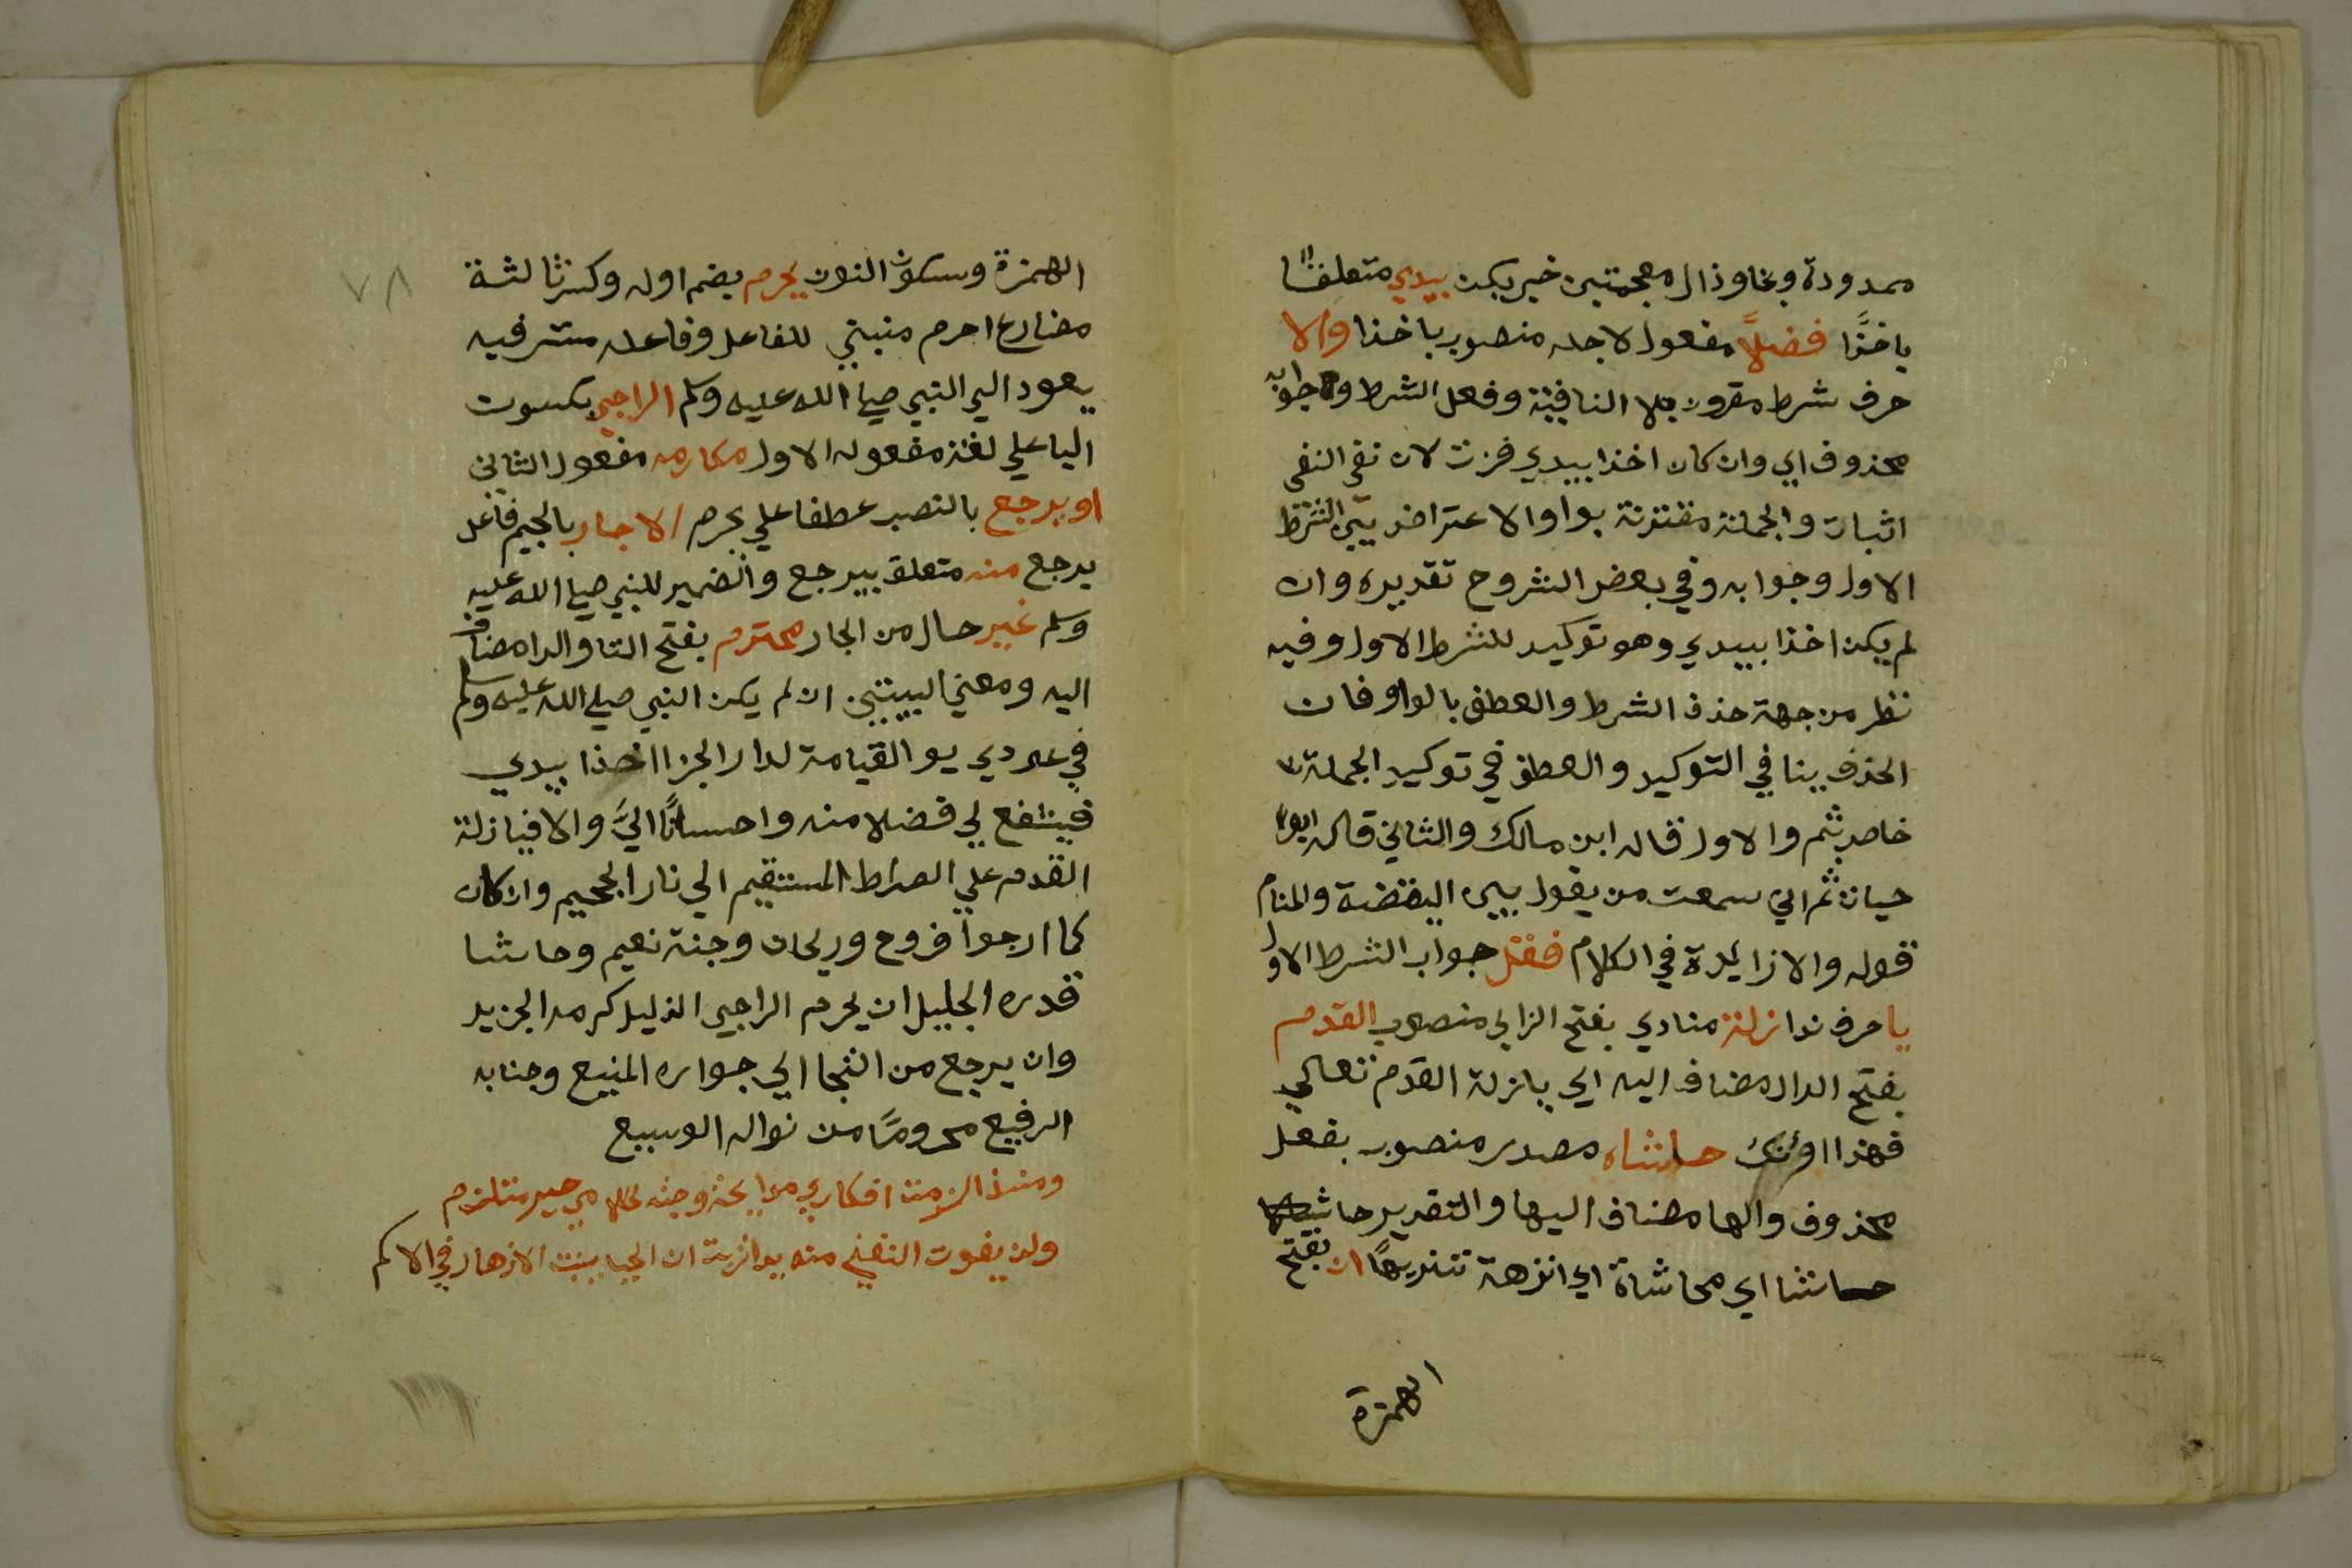 ممدودة وبخا وذال معجمتين خبر يكن بيدي متعلقا
باخذا فضلاً مفعول لاجله منصوب باخذا والا
حرف شرط مقرون بلا النافية وفعل الشرط وجوابه
محذوف اي وان كان اخذا بيدي فزت لان نفي النفي
اثبات والجملة مقترنة بواو الاعتراض بين الشرط
الاول وجوابه وفي بعض الشروح تقديره وان
لم يكن اخذا بيدي وهو توكيد للشرط الاول وفيه
نظر من جهة حذف الشرط والعطف بالواو فان
الحذف ينافي التوكيد والعطف في توكيد الجملة
خاص بثم والاول قاله ابن مالك والثاني قاله ابو
حيان ثم اني سمعت من يقول بين اليقضة والمنام
قوله والا زايدة في الكلام فقل جواب الشرط الاول
يا حرف ندا زلة منادي بفتح الزاي منصوب القدم
بفتح الدال مضاف اليه اي يا زلة القدم تعالي
فهذا اونك حاشاه مصدر منصوب بفعل
محذوف والها مضاف اليها والتقدير
حاشا اي محاشاة اي انزهة تنزيها ان بفتح
الهمزة
٧٨
الهمزة وسكون النون يحرم بضم اوله وكسر ثالثة
مضارع احرم مبني للفاعل وفاعله مستتر فيه
يعود الي النبي صلي الله عليه وسلم الراجي بسكون
اليا علي لغة مفعوله الاول مكارمه مفعول الثاني
او يرجع بالنصب عطفا علي يحرم الاجار بالجيم فاعل
يرجع منه متعلق بيرجع والضمير للنبي صلي الله عليه
وسلم غير حال من الجار محترم بفتح التا والرا مضاف
اليه ومعني البيتين ان لم يكن النبي صلي الله عليه وسلم
في عودي يو القيامة لدار الجزا اخذا بيدي
فيشفع لي فضلا منه واحسانًا اليَّ والا فيا زلة
القدم علي الصراط المستقيم الي نار الجحيم وان كان
كما ارجوا فروح وريحان وجنة نعيم وحاشا
قدره الجليل ان يحرم الراجي الذليل كرمه الجزيد
وان يرجع من التجا الي جواره المنيع وجنابه
الرفيع محروما من نواله الوسيع
ومنذ الزمت افكاري مدايحه وجدته لخلاصي خير ملتزم
ولن يفوت الغني منه يدا تربت ان الحيا ينبت الازهار في الاكم